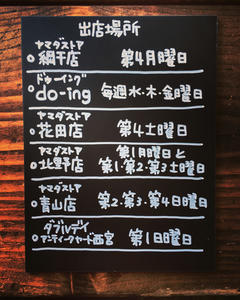 出店場所
ヤマダストア
・網干店 第4月曜日
ドゥーイング
・do-ing 毎週水・木・金曜日
ヤマダストア
・花田店 第4土曜日
ヤマダストア 第1月曜日と
・北野店 第1・第2・第3土曜日
ヤマダストア
・青山店 第2・第3・第4日曜日
ダブルデイ
・アンティークヤード西宮 第1日曜日